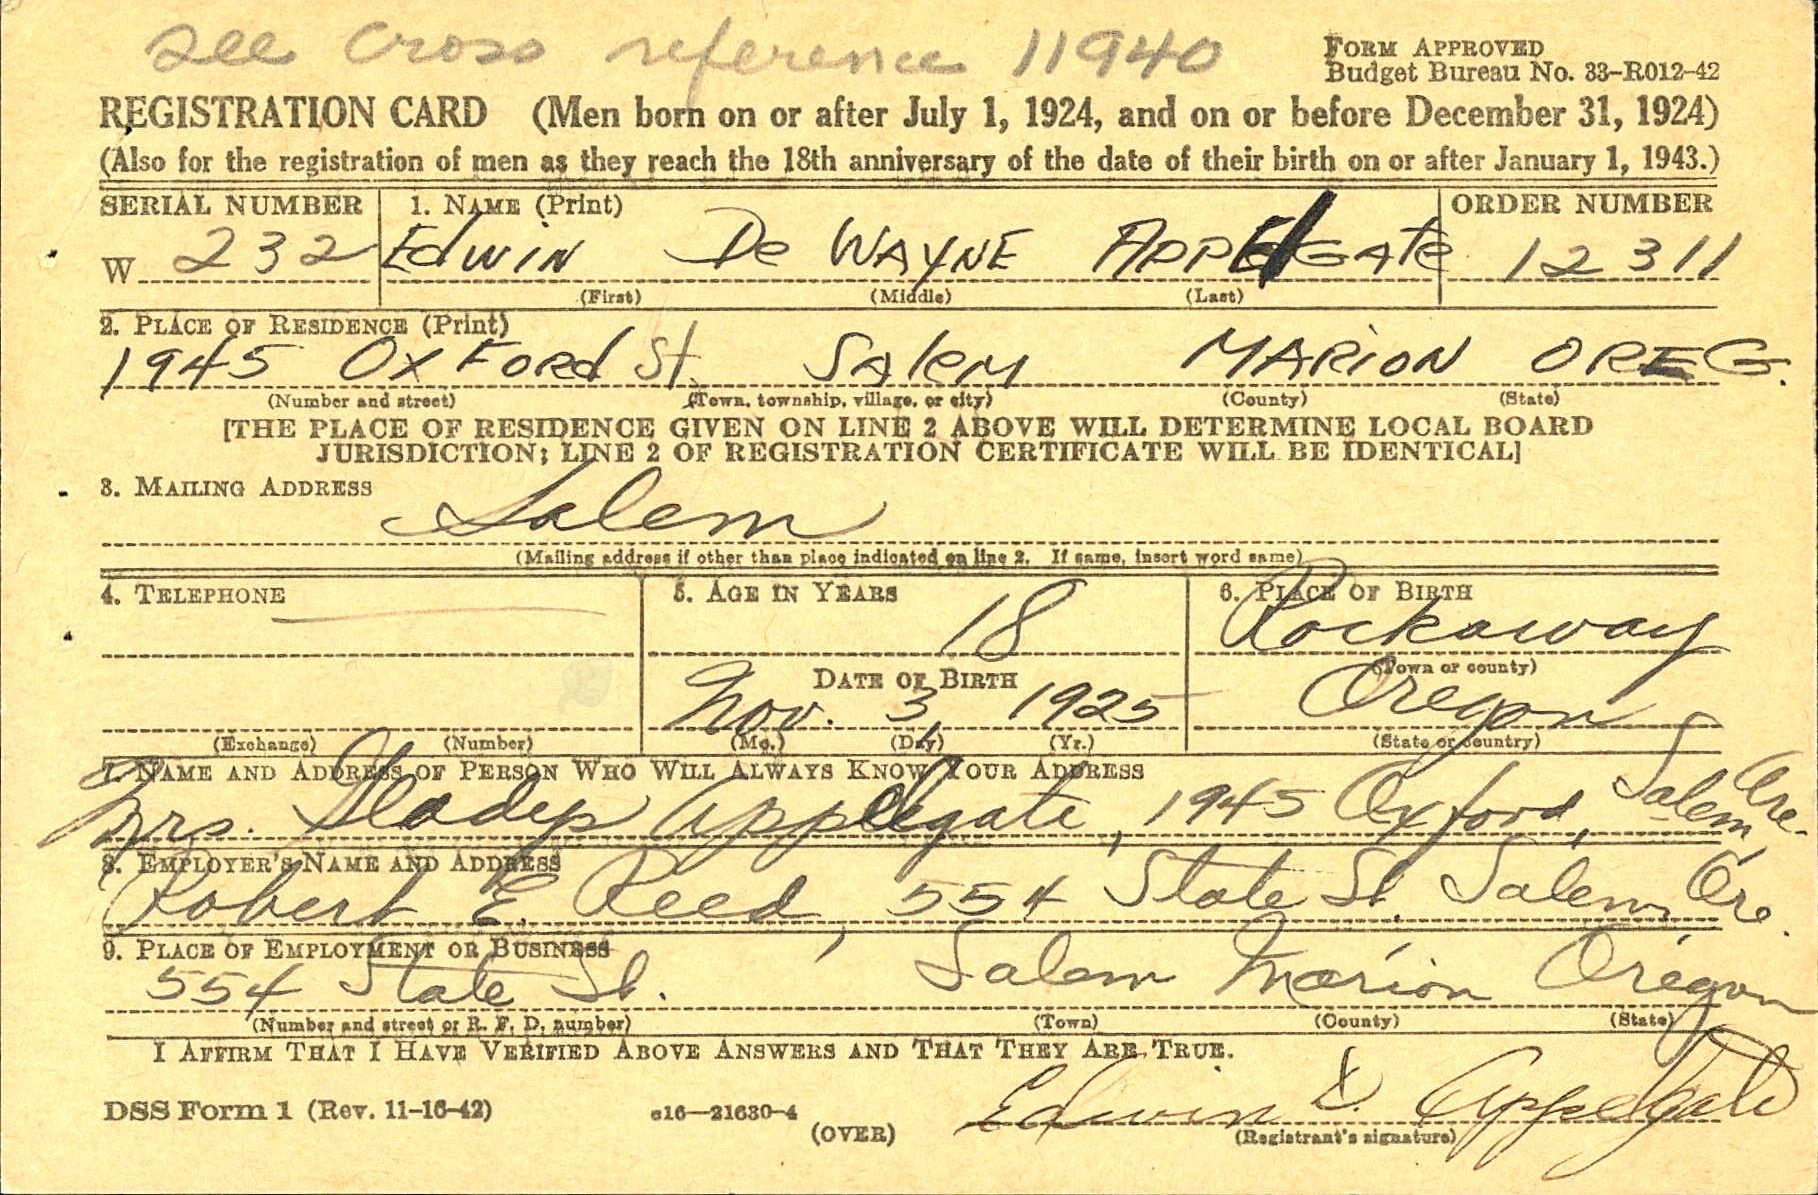 See Cross reference 11940
FORM APPROVED
Budget Bureau No. 33-R012-42
REGISTRATION CARD (Men born on or after July 1, 1924, and on or before December 31, 1924)
(Also for the registration of men as they reach the 18th anniversary of the date of their birth on or after January 1, 1943.)
SERIAL NUMBER 1. NAME (Print) ORDER NUMBER
W 232 Edwin De WAYNE APPElGATE 12311
(First) (Middle) (Last)
2. PLACE OF RESIDENCE (Print)
1945 OXFORd St. SAlEM MARiON OREG.
(Number and street) (Town, township, village, or city) (County) (State)
[THE PLACE OF RESIDENCE GIVEN ON LINE 2 ABOVE WILL DETERMINE LOCAL BOARD
JURISDICTION; LINE 2 OF REGISTRATION CERTIFICATE WILL BE IDENTICAL]
3. MAILING ADDRESS
Salem
(Mailing address if other than place indicated on line 2. If same, insert word same)
4. TELEPHONE 5. AGE IN YEARS 6. PLACE OF BIRTH
18 Rockaway
DATE OF BIRTH (Town or county)
Nov. 3, 1925 Oregon
(Exchange) (Number) (Mo.) (Day) (Yr.) (State or country)
7. NAME AND ADDRESS OF PERSON WHO WILL ALWAYS KNOW YOUR ADDRESS
Mrs. Gladys Applegate, 1945 Oxford, Salem, Ore.
8. EMPLOYER'S NAME AND ADDRESS
Robert E. Reed, 554 State St. Salem, Ore.
9. PLACE OF EMPLOYMENT OR BUSINESS
554 State St. Salem Marion Oregon
(Number and street or R. F. D. number) (Town) (County) (State)
I AFFIRM THAT I HAVE VERIFIED ABOVE ANSWERS AND THAT THEY ARE TRUE.
DSS Form 1 (Rev. 11-16-42) c16—21630-4 Edwin D. Appelgate
(OVER) (Registrant's signature)